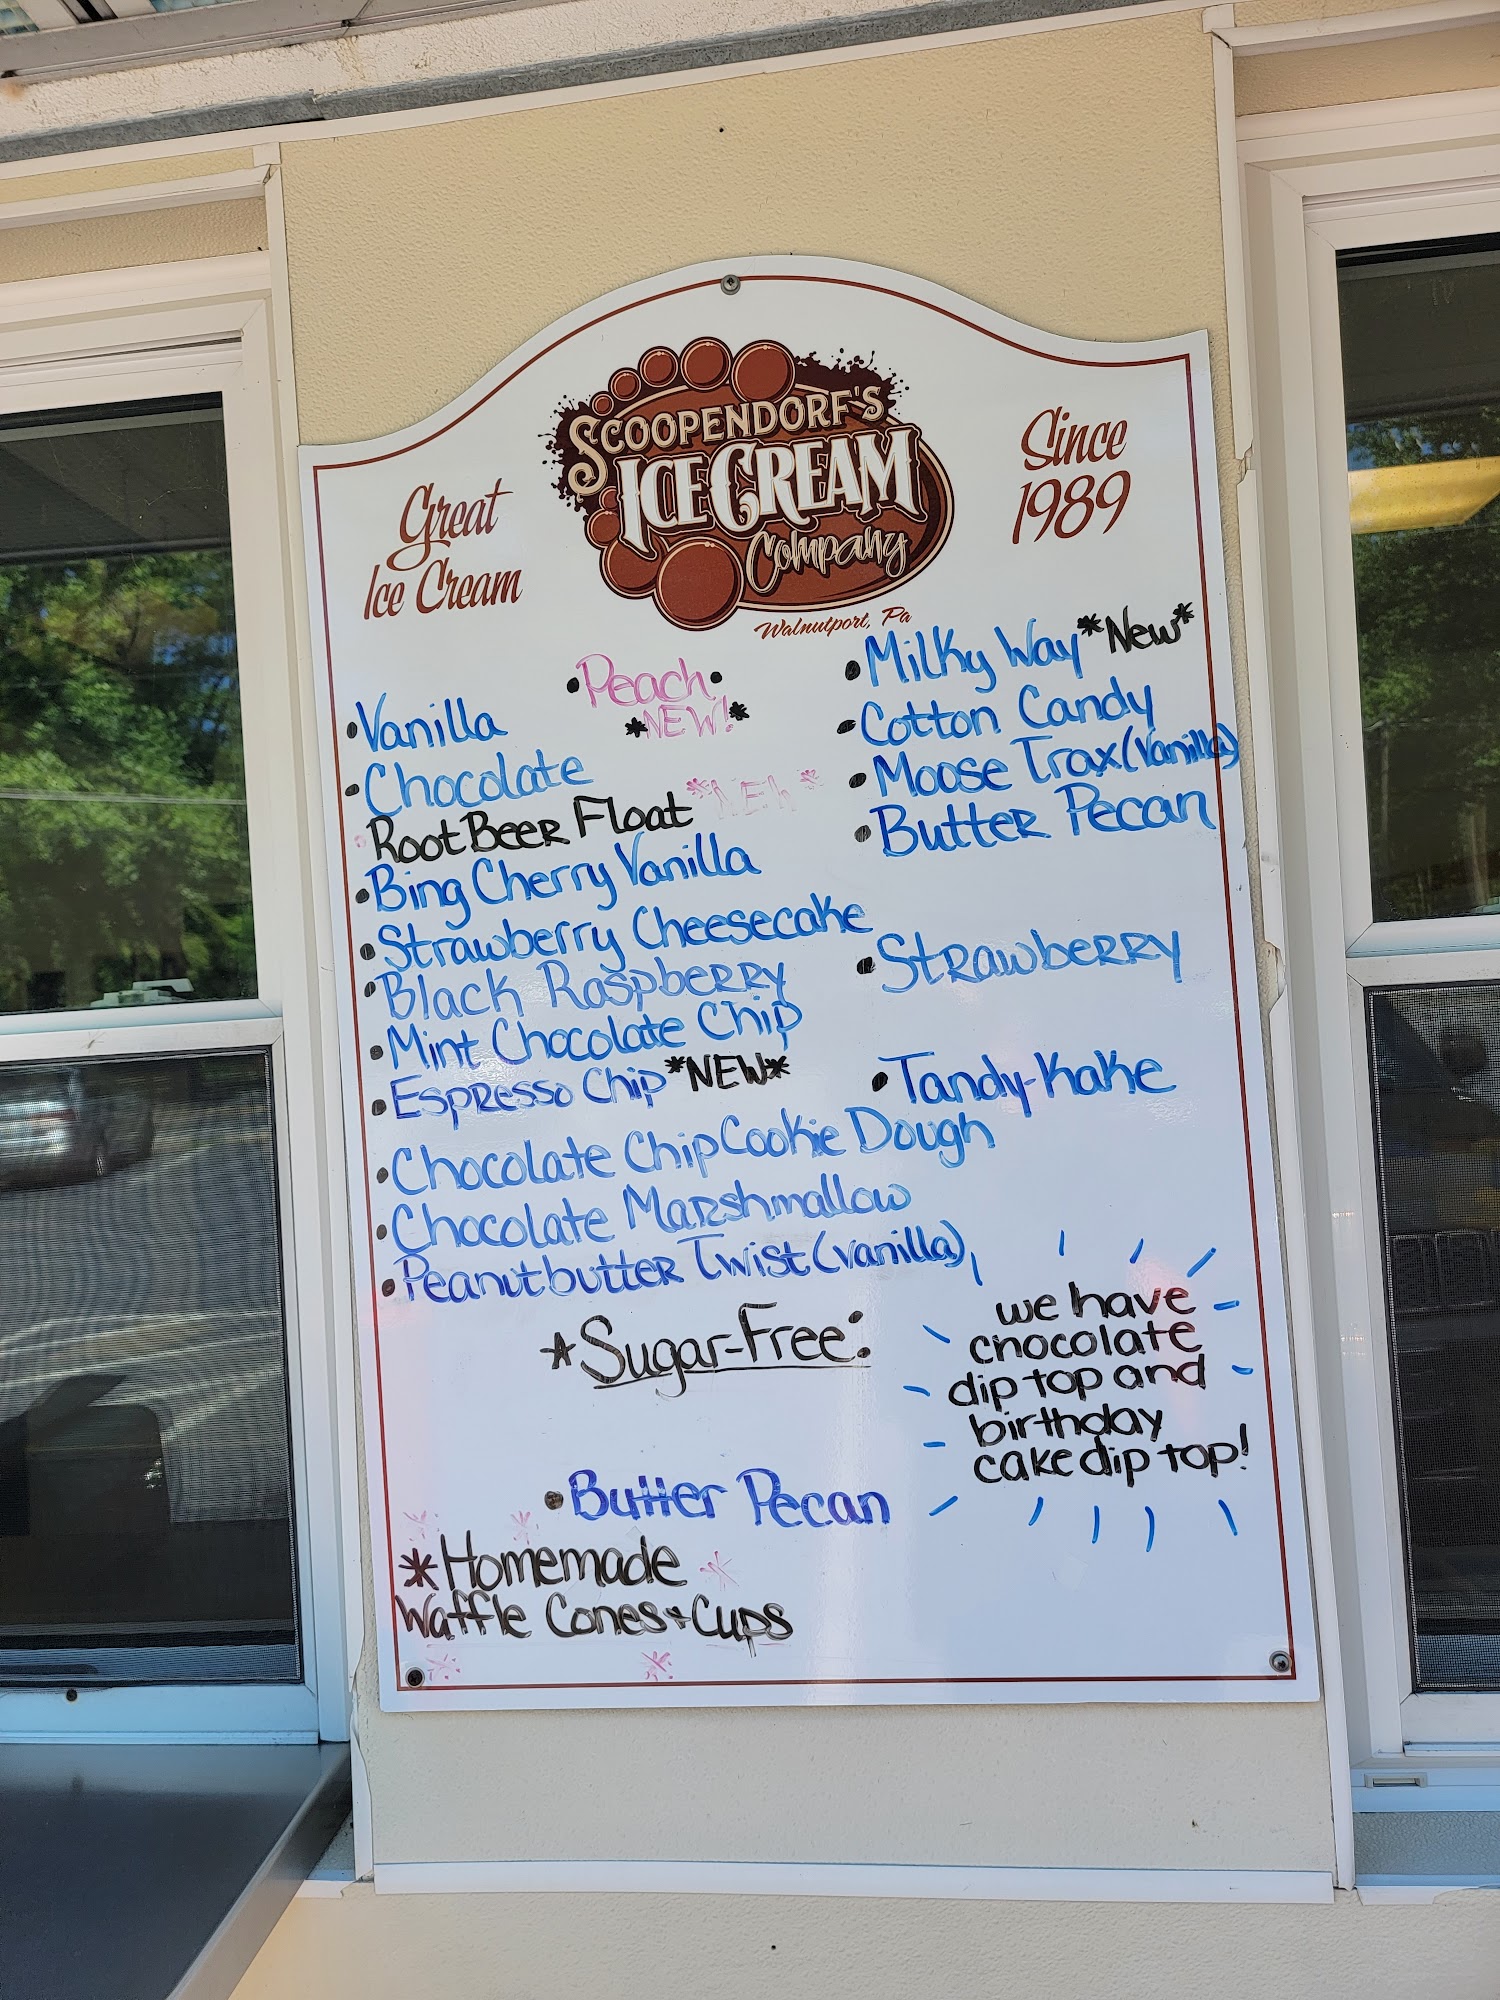 SCOOPENDORF'S
ICE CREAM
Company
Walnutport, Pa
Great
Ice Cream
Since
1989
• Peach •
*NEW!*
• Vanilla
• Chocolate
• Root Beer Float *NEW*
• Bing Cherry Vanilla
• Strawberry Cheesecake
• Black Raspberry
• Mint Chocolate Chip
• Espresso Chip *NEW*
• Chocolate Chip Cookie Dough
• Chocolate Marshmallow
• Peanutbutter Twist (vanilla)
• Milky Way *New*
• Cotton Candy
• Moose Trax (Vanilla)
• Butter Pecan
• Strawberry
• Tandy-Kake
*Sugar-Free:
• Butter Pecan
we have
chocolate
dip top and
birthday
cake dip top!
*Homemade
Waffle Cones + Cups